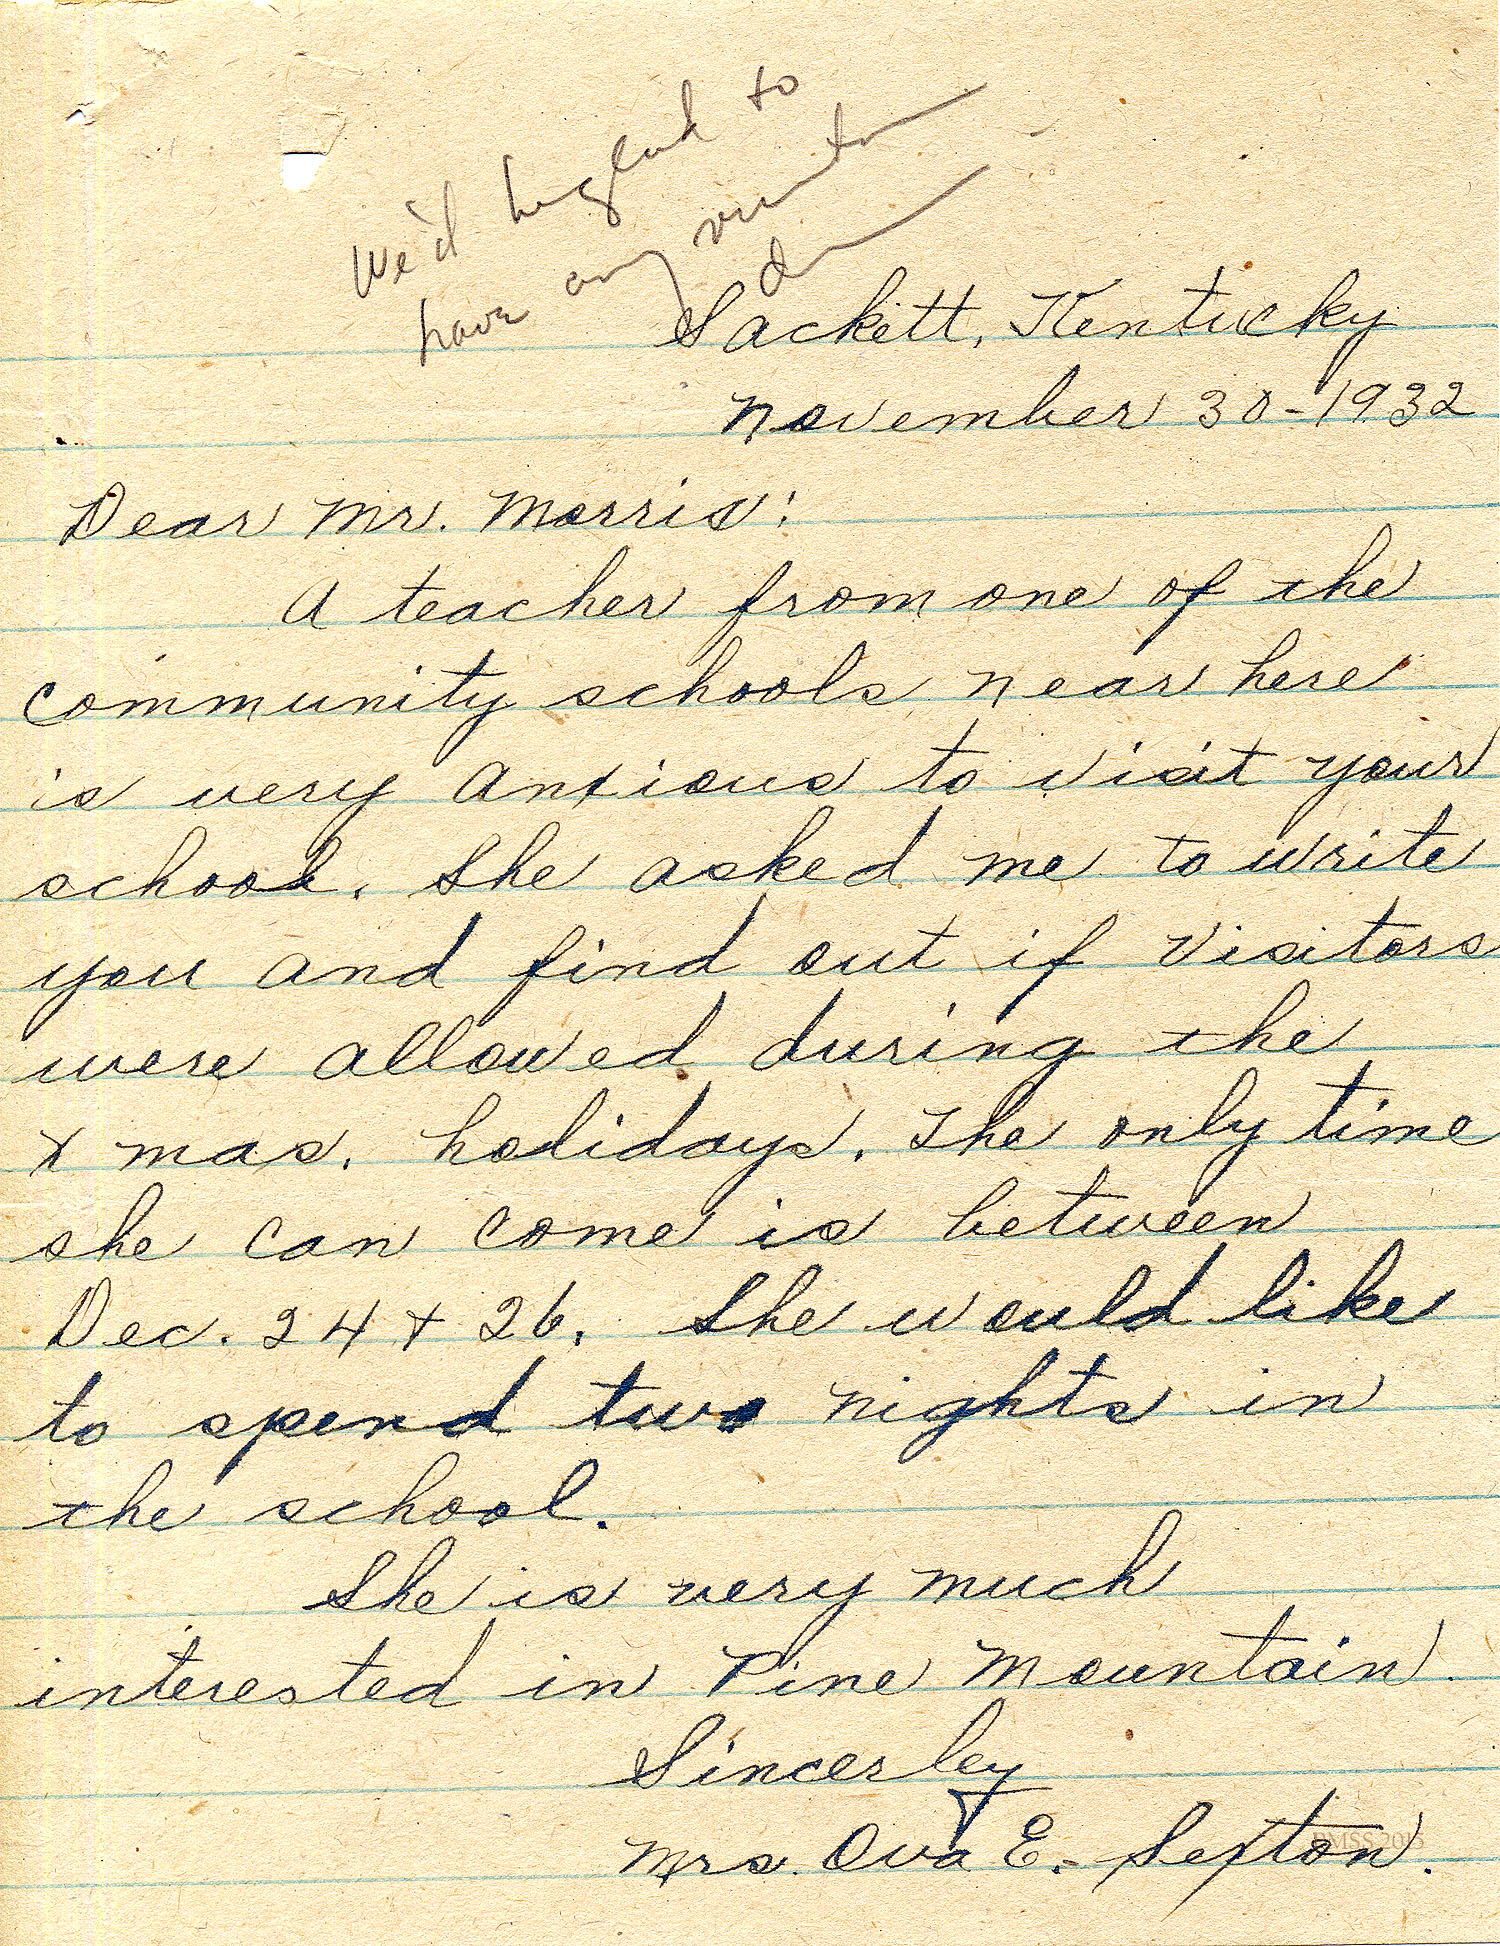 We'd be glad to
have any visitor
Sackett, Kentucky
November 30-1932
Dear Mr. Morris:
A teacher from one of the
community schools near here
is very anxious to visit your
school. She asked me to write
you and find out if visitors
were allowed during the
Xmas. holidays. The only time
she can come is between
Dec. 24 + 26. She would like
to spend two nights in
the school.
She is very much
interested in Pine Mountain.
Sincerley
Mrs. Ova E. Sexton.
PMSS 2015